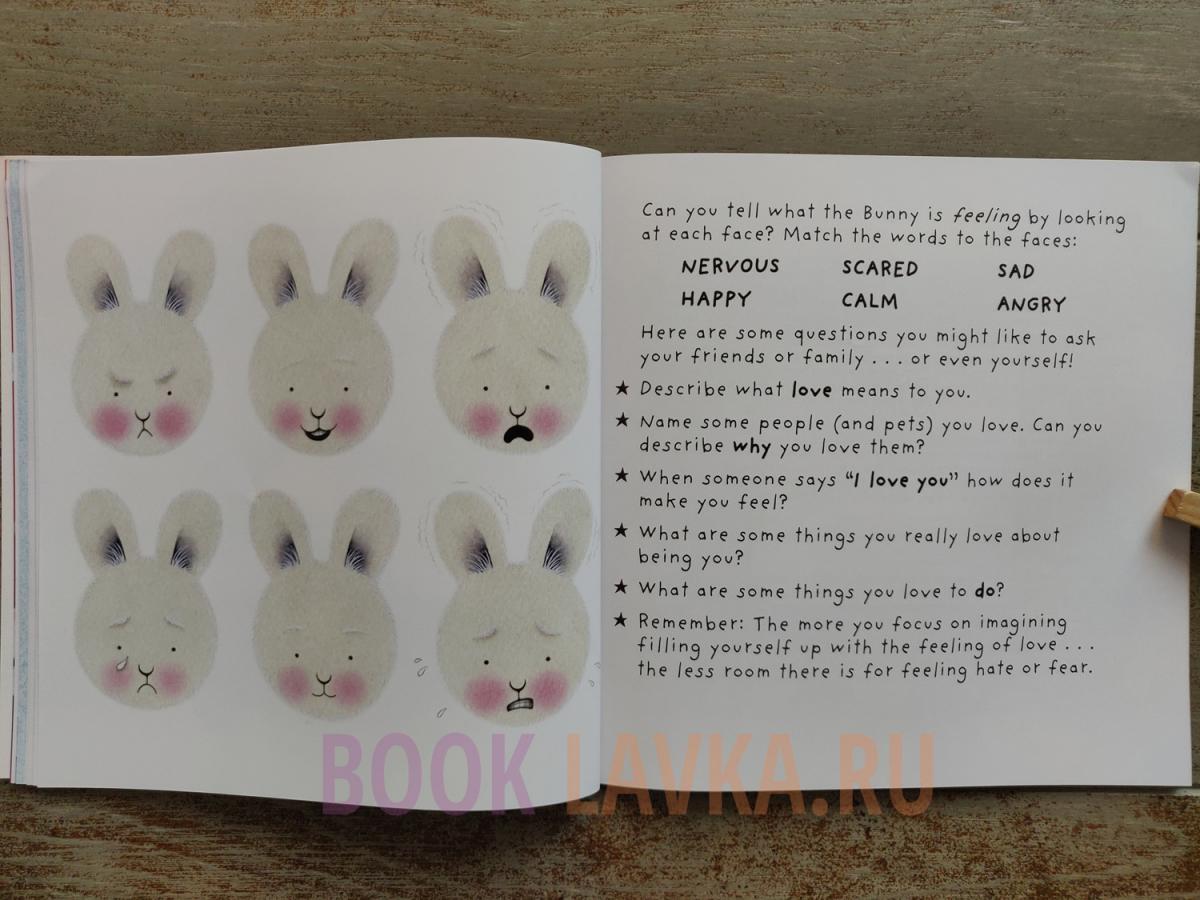 Can you tell what the Bunny is feeling by looking
at each face? Match the words to the faces:
NERVOUS SCARED SAD
HAPPY CALM ANGRY
Here are some questions you might like to ask
your friends or family . . . or even yourself!
★ Describe what love means to you.
★ Name some people (and pets) you love. Can you
describe why you love them?
★ When someone says “I love you” how does it
make you feel?
★ What are some things you really love about
being you?
★ What are some things you love to do?
★ Remember: The more you focus on imagining
filling yourself up with the feeling of love . . .
the less room there is for feeling hate or fear.
BOOK LAVKA.RU